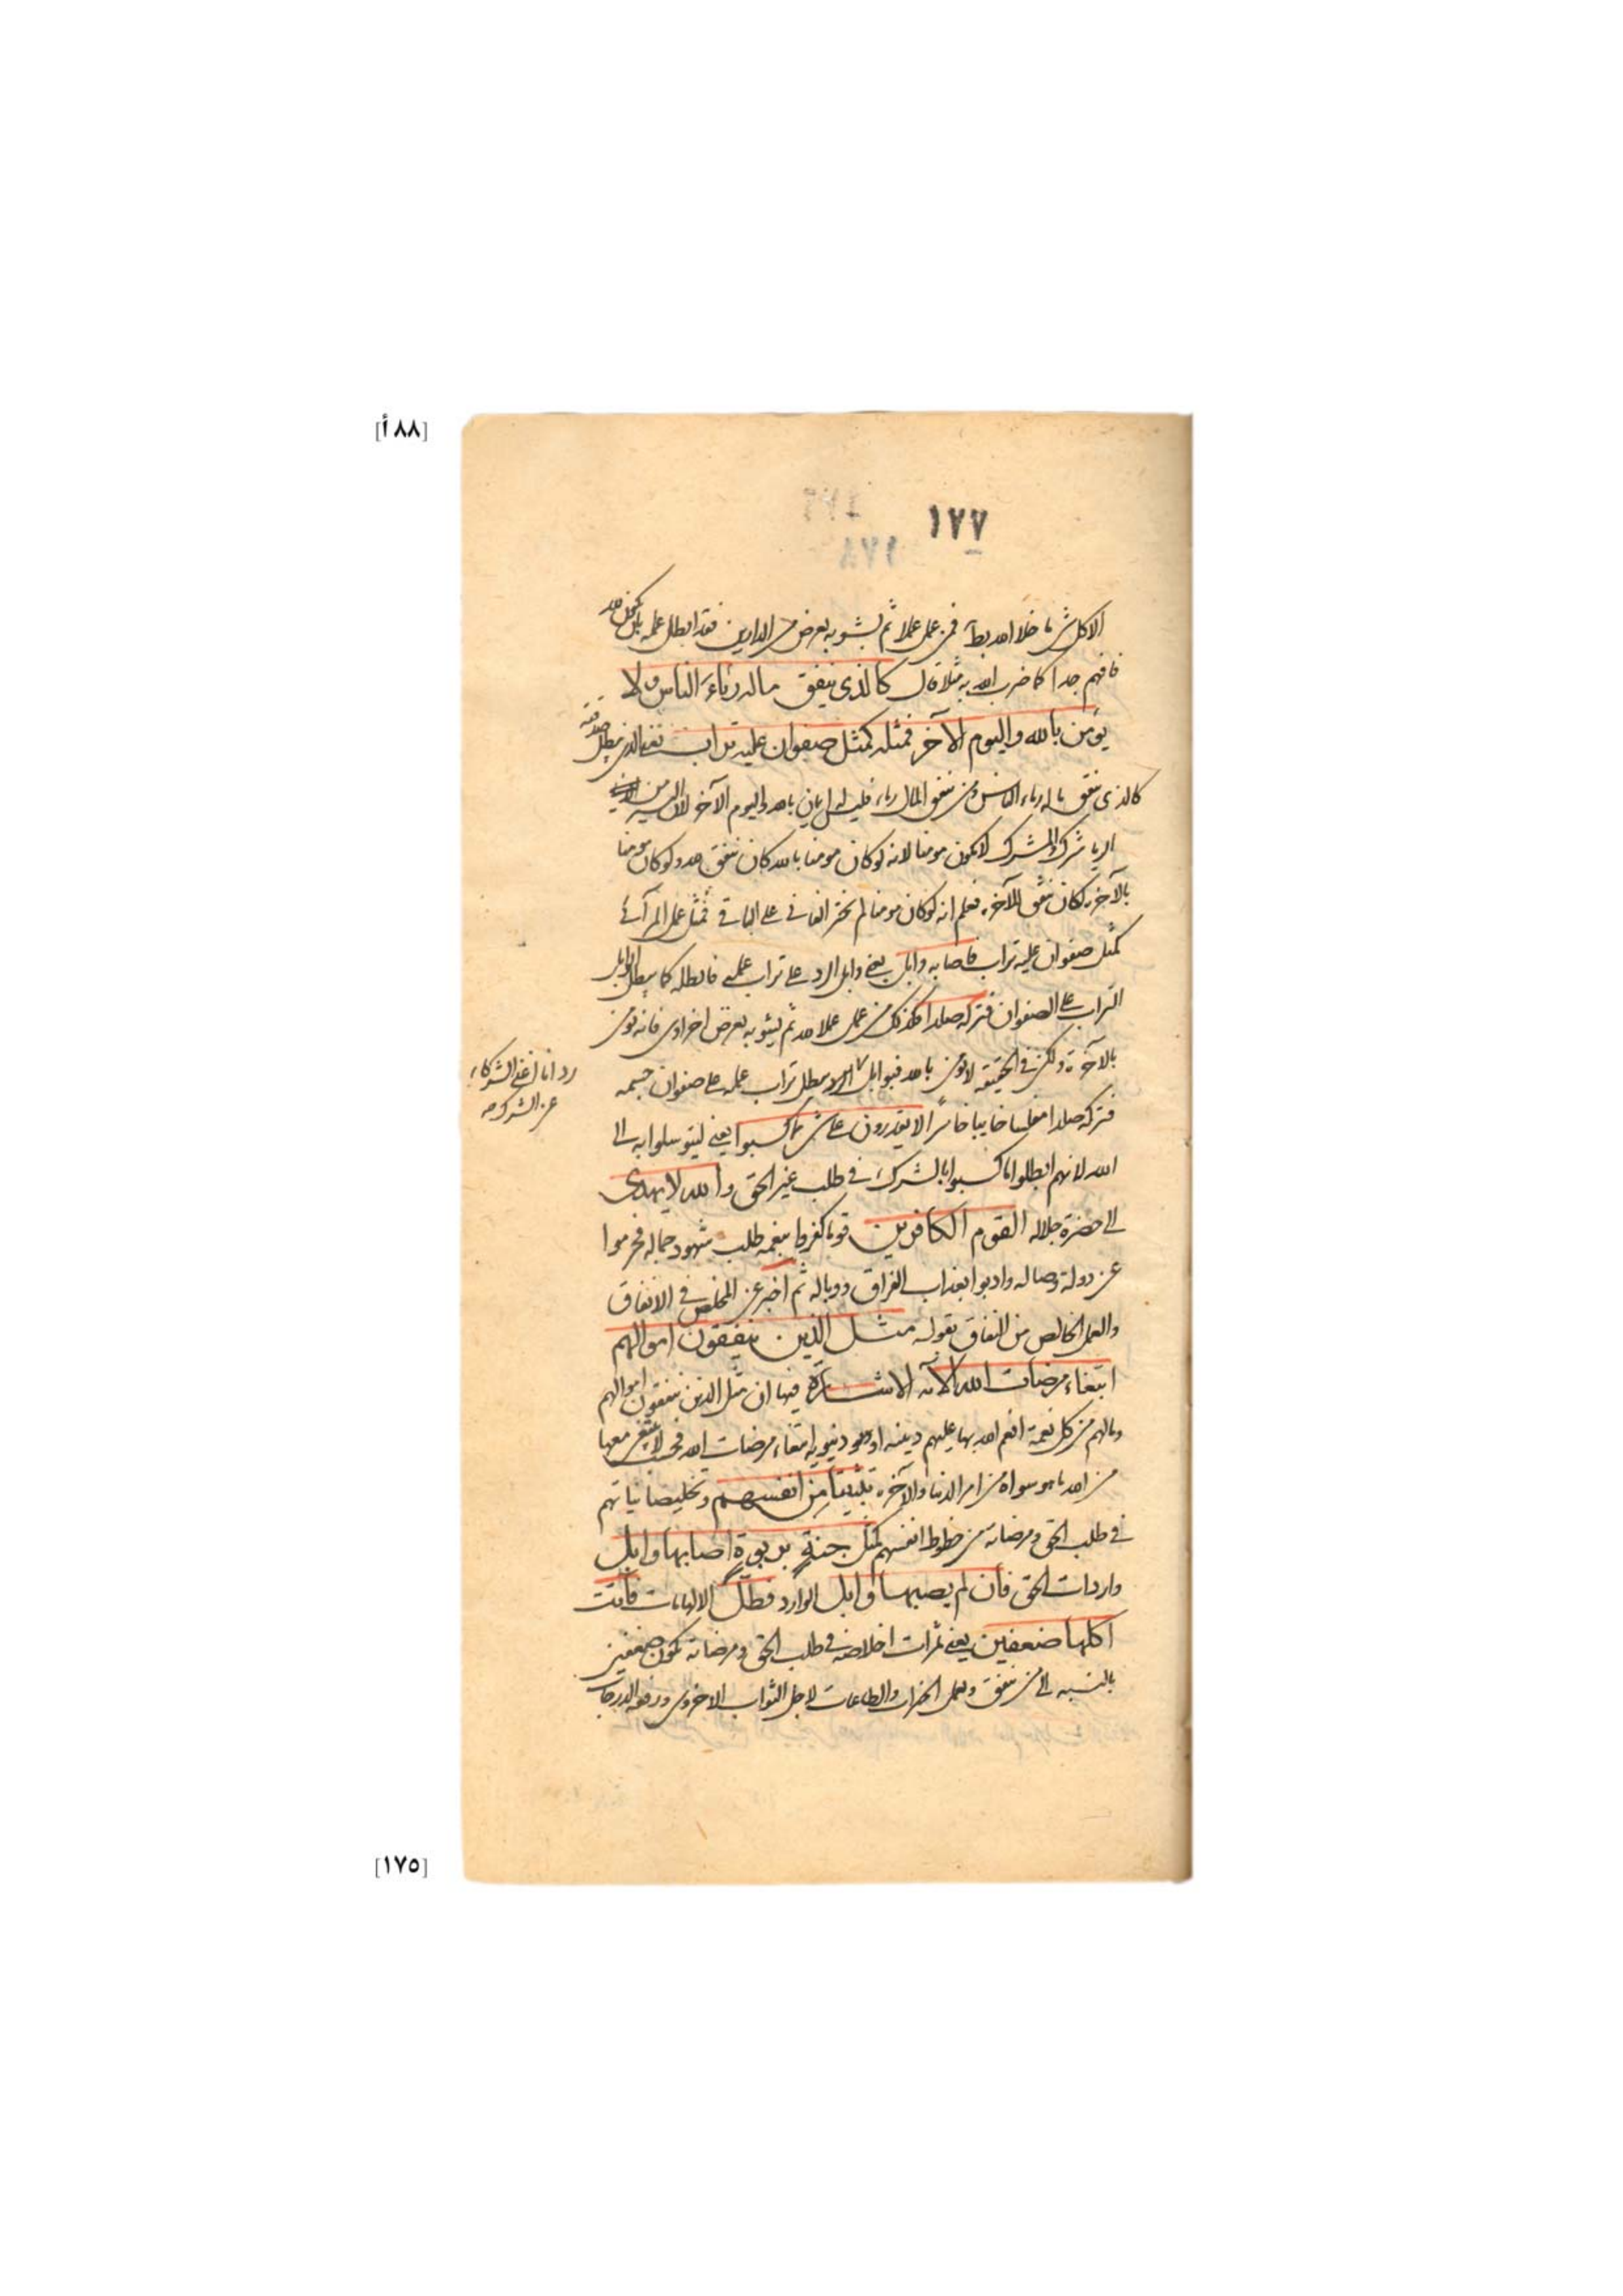 [٨٨أ]
١٧٧
الا كل شئ ما خلا الله باطل فمن عمل عملا ثم يشوبه بعرض من الدارين فقد ابطل عمله بان يكون لله
فافهم جدا كما ضرب الله به مثلا وقال كالذى ينفق ماله رئاء الناس ولا
يؤمن بالله واليوم الآخر فمثله كمثل صفوان عليه تراب يعنى الذى يبطل صدقته
كالذى ينفق ماله رياء الناس ومن ينفق المال رياء فليس له ايمان بالله واليوم الآخر لان
الريا شرك والمشرك لا يكون مومنا لانه لو كان مومنا بالله كان ينفق لله ولو كان مومنا
بالآخرة لكان ينفق للآخرة فعلم انه لو كان مومنا لم يختر الفانى على الباقى فمثل عمل المرآئى
كمثل صفوان عليه تراب فاصابه وابل يعنى وابل الرد على تراب عمله فابطله كما يبطل الوابل
التراب على الصفوان فتركه صلدا فكذلك من عمل عملا لله ثم يشوبه بعرض اخراوى فانه يومن
بالآخرة ولكن فى الحقيقة لا يومن بالله فبوابل الرد يبطل تراب عمله على صفوان جسمه
رد انا اغنى الشركاء
عن الشرك صه
فتركه صلدا مفلسا خايبا خاسرا لا يقدرون على شئ مما كسبوا يعنى ليتوسلوا به الى
الله لانهم ابطلوا ما كسبوا بالشرك فى طلب غير الحق والله لا يهدى
الى حضرة جلاله القوم الكافرين قوما كفروا بنعمة طلب شهود جماله فحرموا
عن دولة وصاله وادبوا بعذاب الفراق ووباله ثم اخبر عن المخلص فى الانفاق
والعمل الخالص من النفاق بقوله مثل الذين ينفقون اموالهم
ابتغاء مرضات الله الآية الاشارة فيها ان مثل الذين ينفقون اموالهم
ومالهم من كل نعمة انعم الله بها عليهم دينية او دنيوية ابتغاء مرضات الله فحسب لا يبتغى معها
من الله ما هو سواه من امر الدنيا والآخرة تثبيتا من انفسهم وتخليصا نياتهم
فى طلب الحق ومرضاته من حظوظ انفسهم كمثل جنة بربوة اصابها وابل
واردات الحق فان لم يصبها وابل الوارد فطل الالهامات فآتت
اكلها ضعفين يعنى ثمرات اخلاصه فى طلب الحق ومرضاته تكون ضعفين
بالنسبه الى من ينفق ويعمل الخيرات والطاعات لاجل الثواب الاخروى ورفعة الدرجات
[١٧٥]